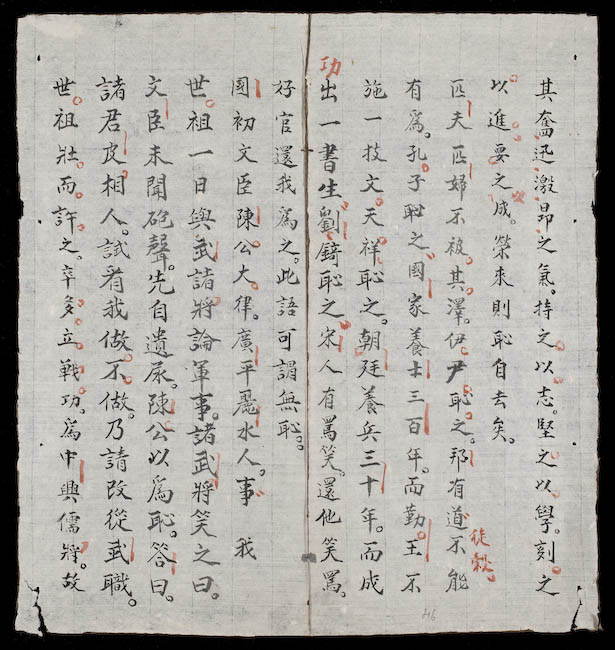 其奮迅激昂之氣。持之以志。堅之以學。刻之
以進。要之成。榮來則恥自去矣。
匹夫匹婦不被其澤。伊尹恥之。邦有道不能
徒穀
有爲。孔子恥之國家養士三百年。而勤王不
施一技文天祥恥之。朝廷養兵三十年。而成
功
出一書生劉錡恥之宋人有罵笑。還他笑罵。
好官還我爲之。此語可謂無恥。
國初文臣陳公大律。廣平麗水人。事 我
世祖一日與武諸將論軍事。諸武將笑之曰。
文臣未聞砲聲。先自遺尿。陳公以爲恥。答曰。
諸君皮相人。試看我做不做。乃請改從武職。
世祖壯而許之。卒多立戰功。爲中興儒將。故